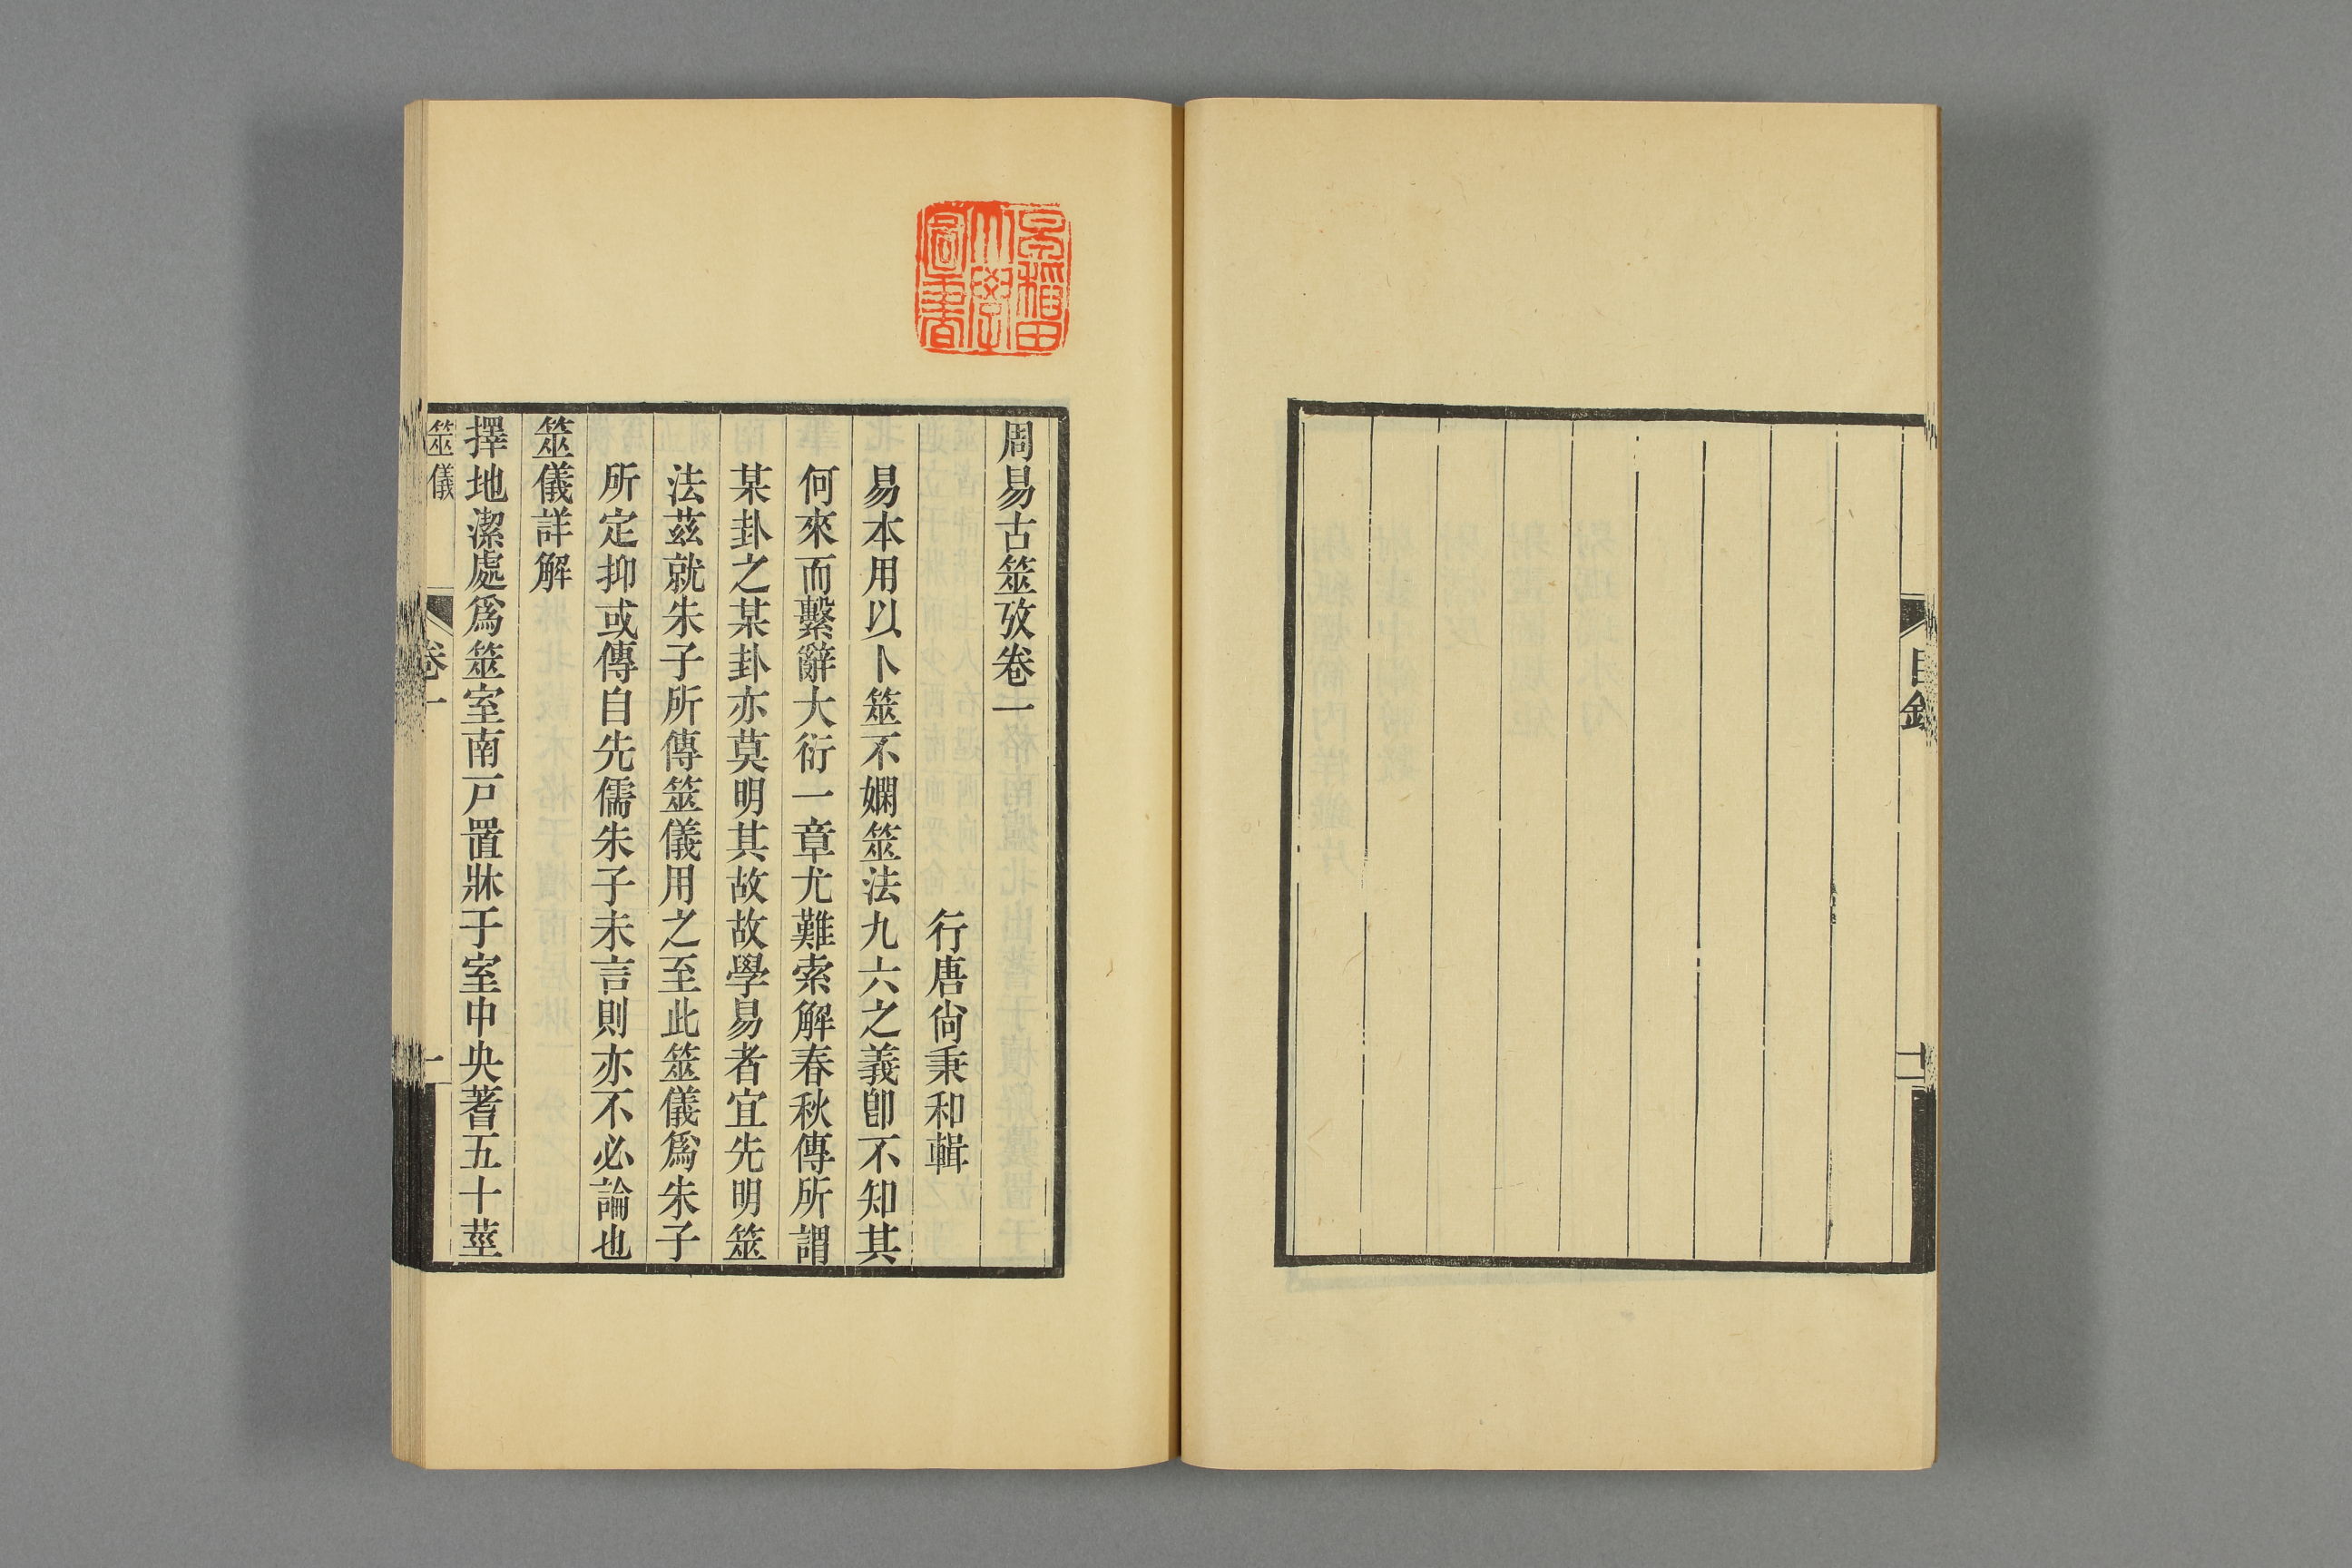 目錄
十一
早稻田
大學
圖書
周易古筮攷卷一
行唐尙秉和輯
易本用以卜筮不嫻筮法九六之義卽不知其
何來而繫辭大衍一章尤難索解春秋傳所謂
某卦之某卦亦莫明其故故學易者宜先明筮
法茲就朱子所傳筮儀用之至此筮儀爲朱子
所定抑或傳自先儒朱子未言則亦不必論也
筮儀詳解
擇地潔處爲筮室南戸置牀于室中央蓍五十莖
筮儀
卷一
一